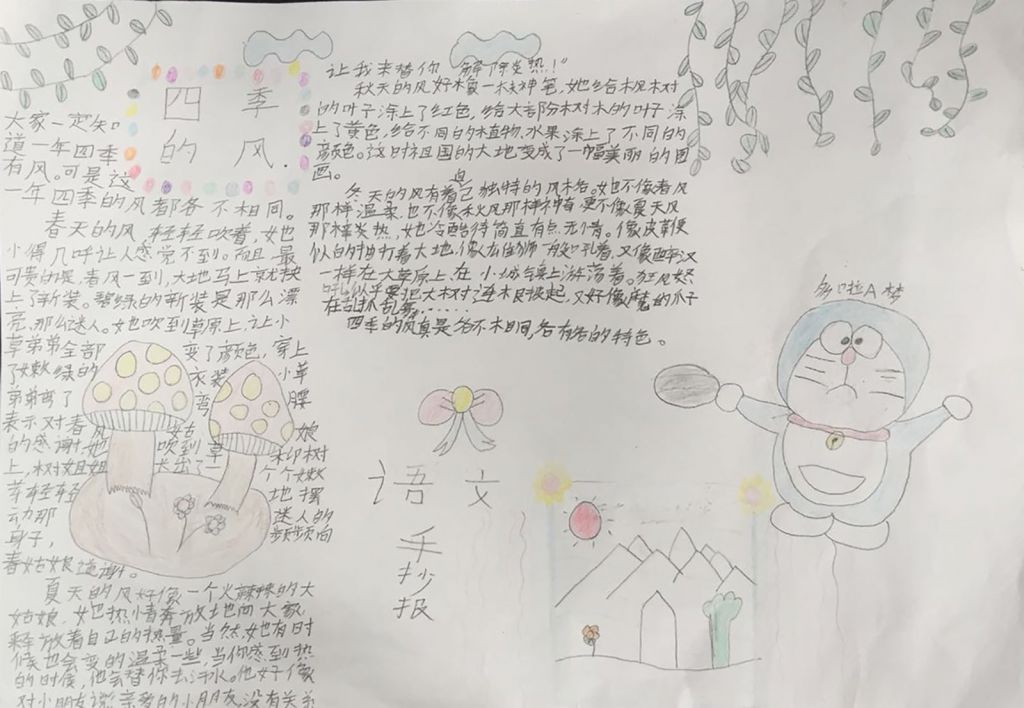 四季
的风
大家一定知
道一年四季
有风。可是这
一年四季的风都各不相同。
春天的风,轻轻吹着,她也
小得几呼让人感觉不到。而且,最
可贵的是,春风一到,大地马上就换
上了新装。碧绿的新装是那么漂
亮,那么谜人。她也吹到草原上,让小
草弟弟全部变了颜色,穿上
了嫩绿的衣装,小草
弟弟弯了弯腰
表示对春风姑娘
的感谢,她吹到草
上,树姐姐长出了一个个嫩
芽轻轻地摆
动那迷人的
身子,频频向
春姑娘道谢。
夏天的风好像一个火辣辣的大
姑娘,她热情奔放地向大家
释放着自己的热量。当然,她也有时
候也会变的温柔一些,当你感到热
的时候,他会替你去汗水。他好像
对小朋友说:亲爱的小朋友,没有关系
让我来替你解除炎热!”
秋天的风好像一枝神笔,她给枫树
的叶子涂上了红色,给大部份树木的叶子涂
上了黄色,给不同的植物、水果涂上了不同的
颜色。这时祖国的大地变成了一幅美丽的图
画。
冬天的风有着自己独特的风格。她也不像春风
那样温柔,也不像秋风那样神奇,更不像夏天风
那样炎热,她冷酷得简直有点无情。像皮革便
似的抽打着大地,像雄狮一般吼着,又像醉汉
一样在大草原上、在小城镇上游荡着。狂风怒
吼,似乎要把大树连根拔起,又好像魔的爪子
在乱抓乱舞......
四季的风真是各不相同,各有各的特色。
多啦A梦
语文
手
抄
报